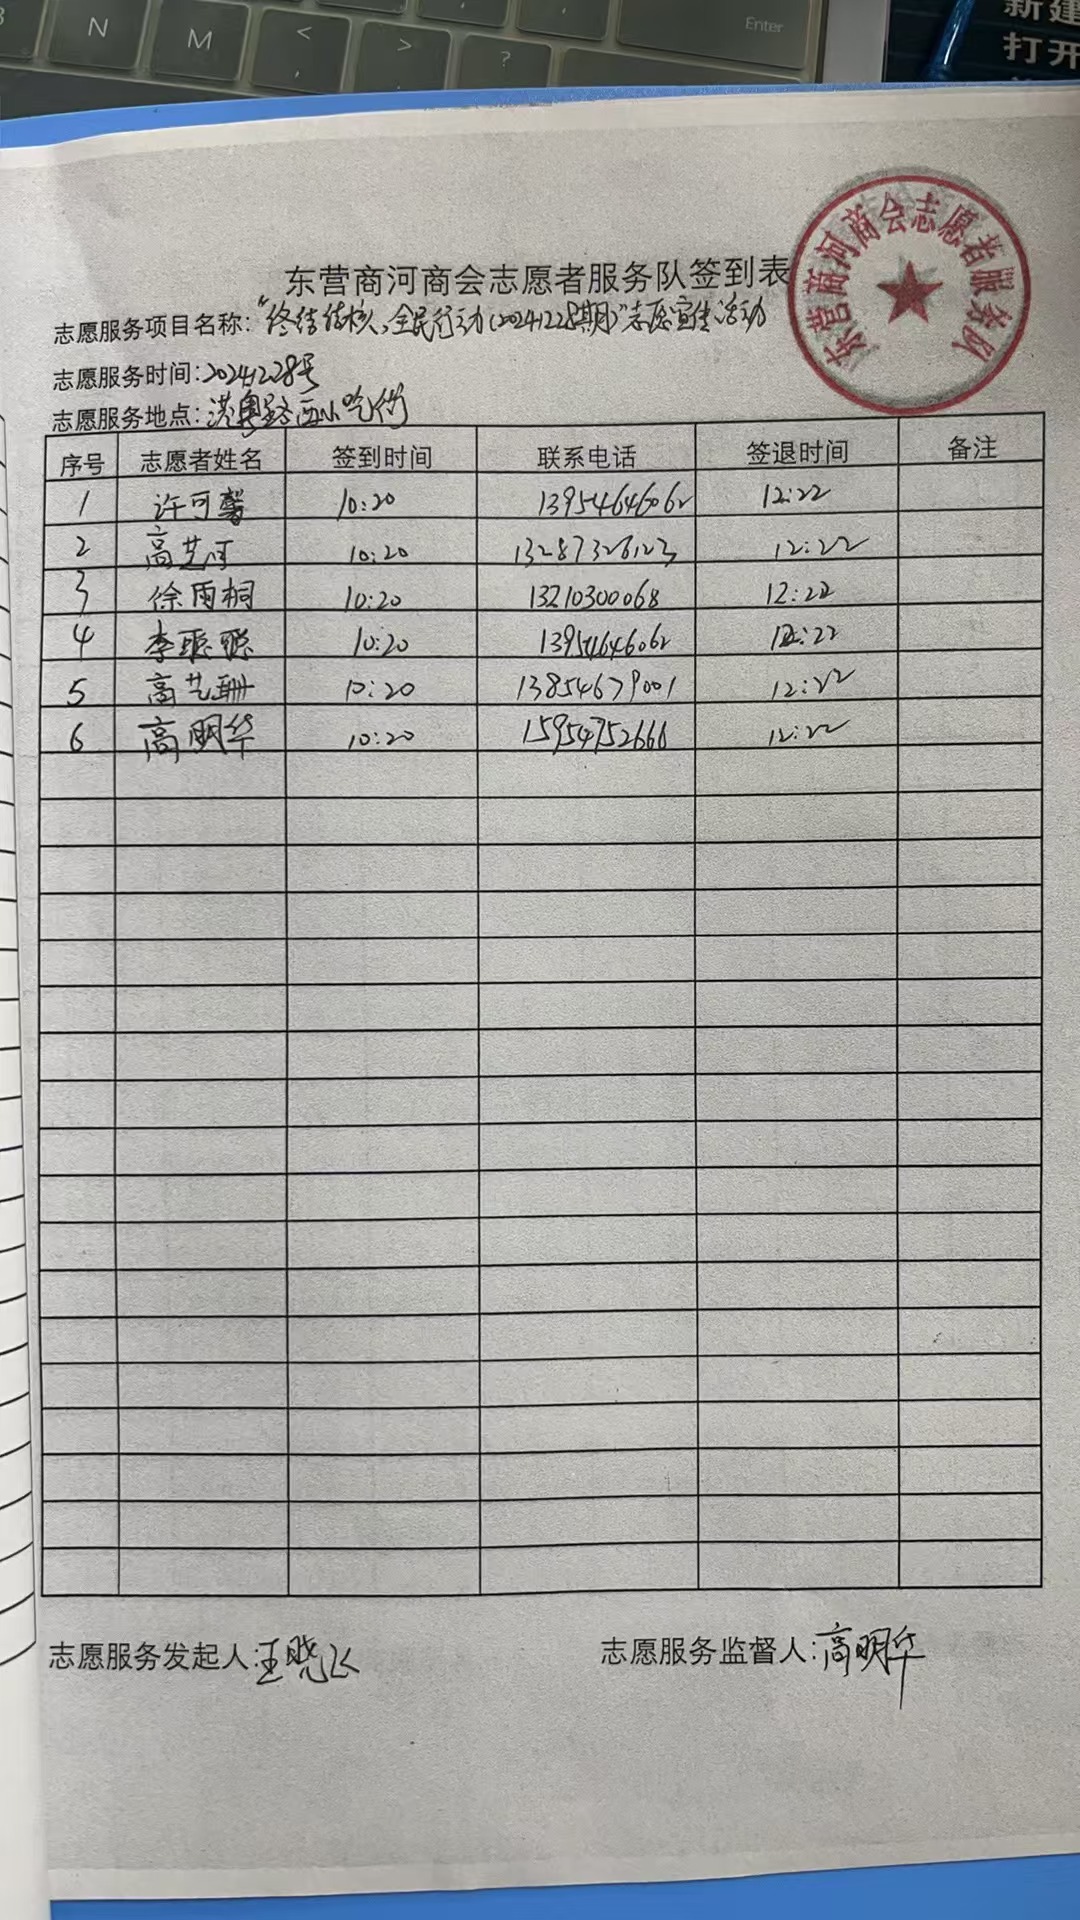 N
M
<
>
?
Enter
新建
打开
东营商河商会志愿者服务队
东营商河商会志愿者服务队签到表
志愿服务项目名称:“终结结核,全民行动(20241228期)”志愿宣传活动
志愿服务时间:20241228号
志愿服务地点:港粤路西小吃街
序号 志愿者姓名 签到时间 联系电话 签退时间 备注
1 许可馨 10:20 13954646062 12:22
2 高艺河 10:20 13287326123 12:22
3 徐雨桐 10:20 13210300068 12:22
4 李聪聪 10:20 13954646062 12:22
5 高艺珊 10:20 13854679001 12:22
6 高明华 10:20 15954752666 12:22
志愿服务发起人:王晓飞 志愿服务监督人:高明华